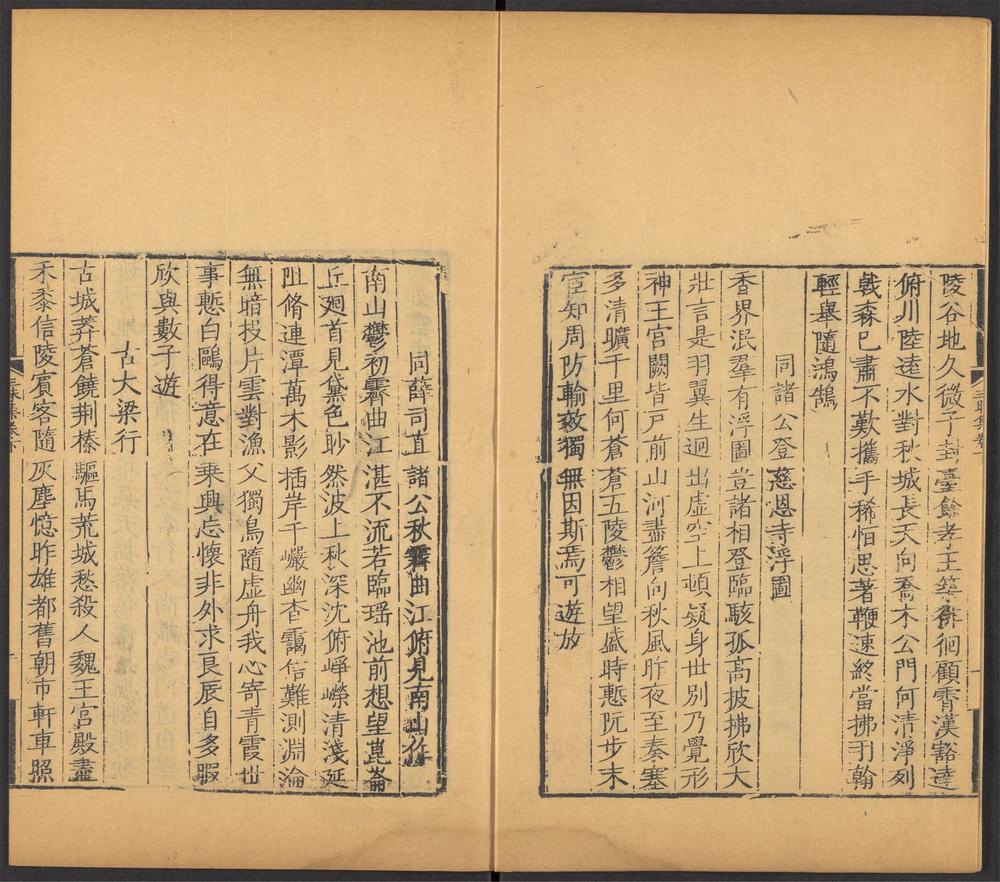 陵谷地久微子封臺餘孝王築徘徊顧霄漢豁達
俯川陸遠水對秋城長天向喬木公門何清淨列
戟森已肅不歎攜手稀恒思著鞭速終當拂羽翰
輕舉隨鴻鵠
同諸公登慈恩寺浮圖
香界泯羣有浮圖豈諸相登臨駭孤高披拂欣大
壯言是羽翼生迥出虛空上頓疑身世別乃覺形
神王宮闕皆戶前山河盡簷向秋風昨夜至秦塞
多清曠千里何蒼蒼五陵鬱相望盛時慙阮步末
宦知周防輸效獨無因斯焉可遊放
同薛司直諸公秋霽曲江俯見南山作
南山鬱初霽曲江湛不流若臨瑤池前想望崑崙
丘迴首見黛色眇然波上秋深沈俯崢嶸清淺延
阻脩連潭萬木影插岸千巖幽杳靄信難測淵淪
無暗投片雲對漁父獨鳥隨虛舟我心寄青霞世
事慙白鷗得意在乗興忘懷非外求良辰自多暇
欣與數子遊
古大梁行
古城莽蒼饒荆榛驅馬荒城愁殺人魏王宮殿盡
禾黍信陵賓客隨灰塵憶昨雄都舊朝市軒車照